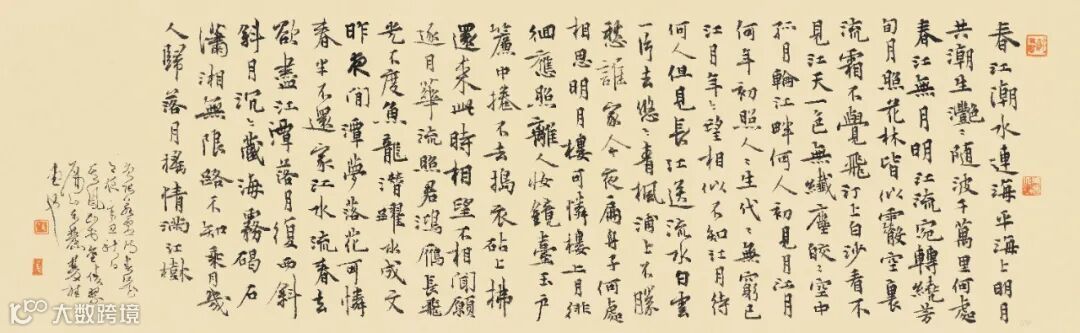 春江潮水連海平海上明月
共潮生灩〻随波千萬里何處
春江無月明江流宛轉繞芳
甸月照花林皆似霰空裏
流霜不覺飛汀上白沙看不
見江天一色無纖塵皎〻空中
孤月輪江畔何人初見月江月
何年初照人〻生代〻無窮已
江月年〻望相似不知江月待
何人但見長江送流水白雲
一片去悠〻青楓浦上不勝
愁誰家今夜扁舟子何處
相思明月樓可憐樓上月徘
徊應照離人妝鏡臺玉户
簾中捲不去搗衣砧上拂
還來此時相望不相聞願
逐月華流照君鴻雁長飛
光不度魚龍潛躍水成文
昨夜閒潭夢落花可憐
春半不還家江水流春去
欲盡江潭落月復西斜
斜月沉〻藏海霧碣石
瀟湘無限路不知乘月幾
人歸落月搖情滿江樹
大数跨境
大数跨境